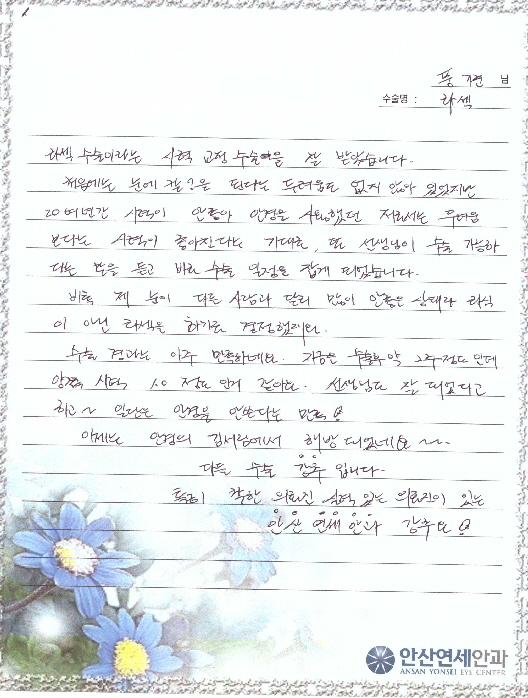 님
수술명 : 라섹
라섹 수술이라는 시력 교정 수술을 잘 받았습니다.
처음에는 눈에 칼을 댄다는 두려움도 없지 않아 있었지만
20여년간 시력이 안좋아 안경을 사용했던 저로서는 두려움
보다는 시력이 좋아진다는 기대로, 또 선생님이 수술 가능하
다는 말을 듣고 바로 수술 일정을 잡게 되었습니다.
비록 제 눈이 다른 사람과 달리 많이 안좋은 상태라 라식
이 아닌 라섹을 하기로 결정했어요.
수술 결과는 아주 만족하네요. 지금은 수술후 약 2주정도 인데
양쪽 시력 1.0 정도 인거 같아요. 선생님도 잘 되었다고
하고~ 일단은 안경을 안쓴다는 만족!
이제는 안경의 김서림에서 해방 되었네요~~
다들 수술 강추 입니다.
특히 착한 의료진 실력 있는 의료진이 있는
안산 연세 안과 강추요!
안산연세안과
ANSAN YONSEI EYE CENTER